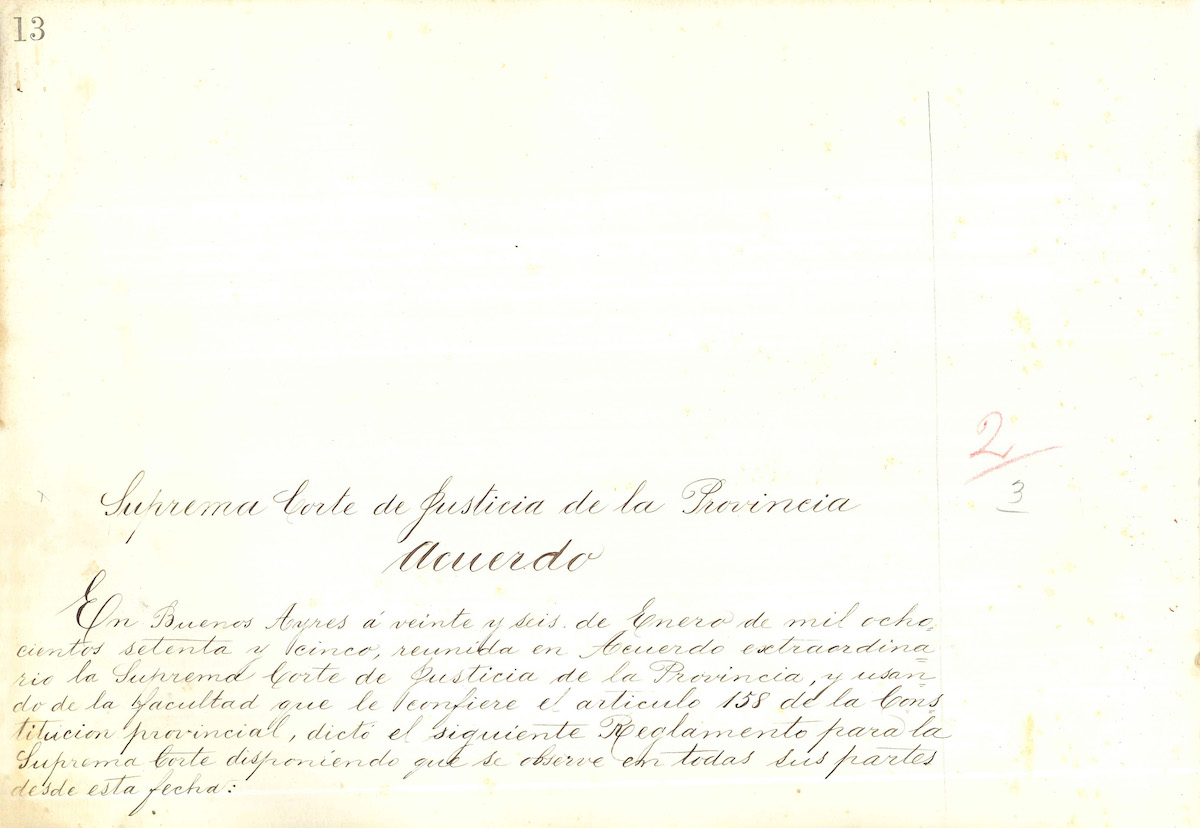 13
2
3
Suprema Corte de Justicia de la Provincia
Acuerdo
En Buenos Ayres á veinte y seis de Enero de mil ocho-
cientos setenta y cinco, reunida en Acuerdo extraordina=
rio la Suprema Corte de Justicia de la Provincia, y usan=
do de la facultad que le confiere el articulo 158 de la Cons
titucion provincial, dictó el siguiente Reglamento para la
Suprema Corte disponiendo que se observe en todas sus partes
desde esta fecha: